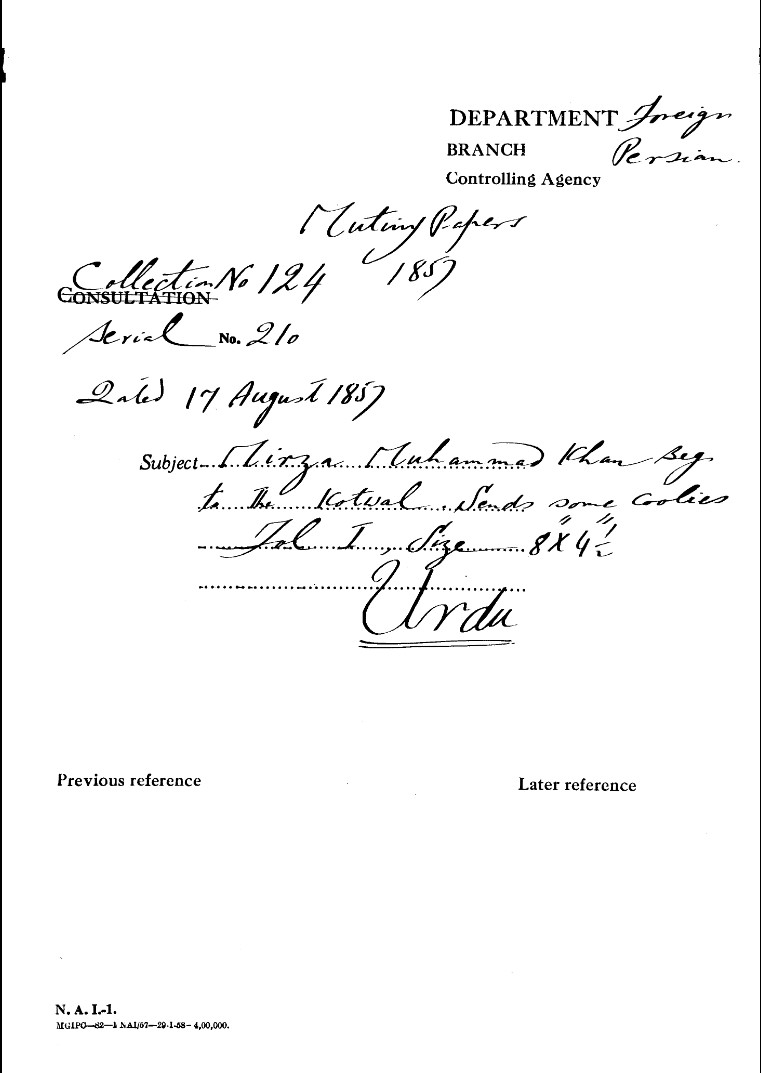 DEPARTMENT Foreign
BRANCH Persian.
Controlling Agency
Mutiny Papers
Collection No 124 1857
CONSULTATION
Serial No. 210
Dated 17 August 1857
Subject Mirza Muhammad Khan Beg
to the Kotwal. Sends some coolies
Fol I, Size 8" X 4½"
Urdu
Previous reference
Later reference
N. A. I.-1.
MGIPO—82—1 NAI/57—29-1-58—4,00,000.